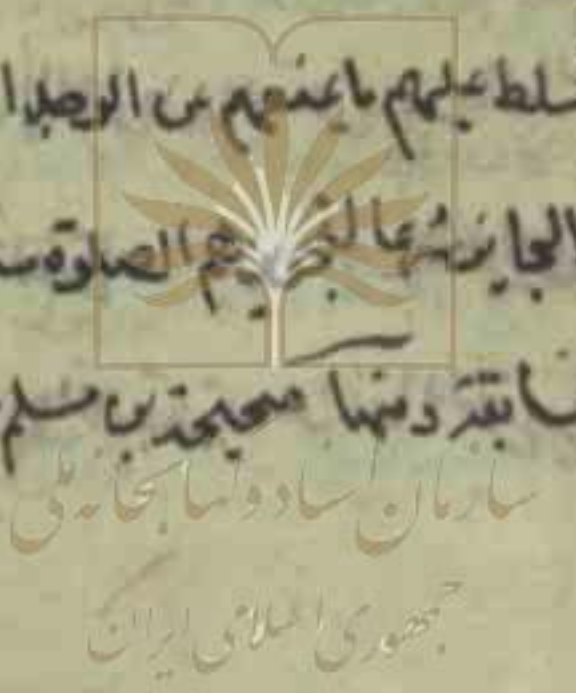 سلط عليهم ما يمنعهم من الوصلوا
الجايز شرعا الصلوة
سابقة ومنها صحيحة بن مسلم
سازمان اسناد و کتابخانه ملی
جمهوری اسلامی ایران